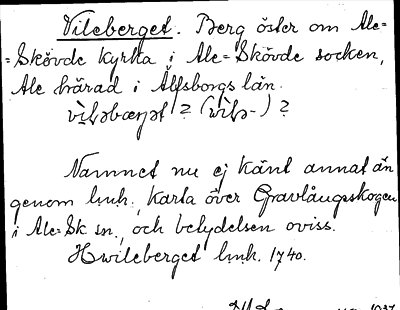 Vileberget. Berg öster om Ale-
=Skövde kyrka i Ale-Skövde socken,
Ale härad i Älfsborgs län.
? ( ) ?
Namnet nu ej känt annat än
genom lmh. karta över Gravlångsskogen
i Ale-Sk sn., och betydelsen oviss.
Hwileberget lmh. 1740.